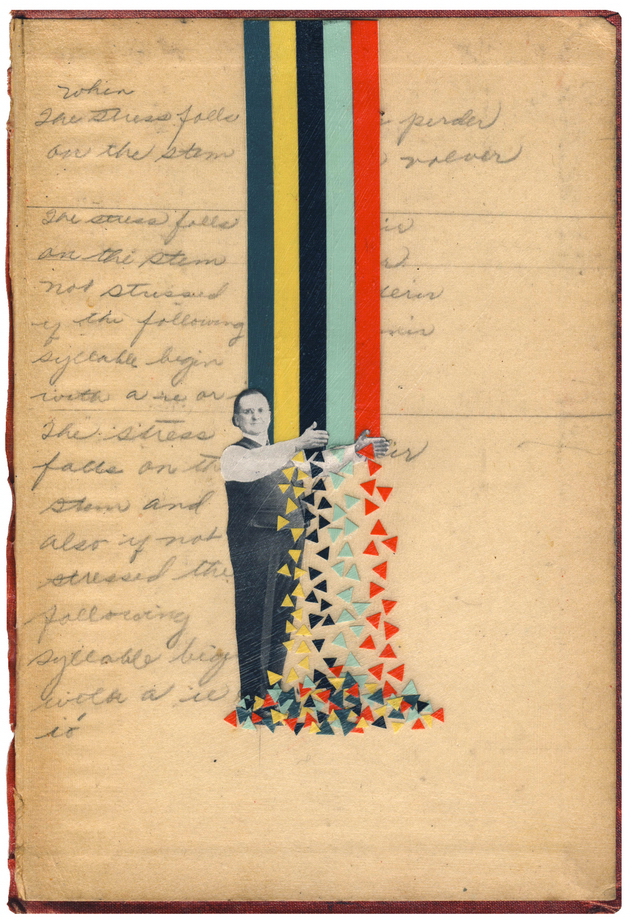 when
The stress falls perder
on the stem volver
The stress falls
on the stem
not stressed
if the following
syllable begin
with a ie or
The stress
falls on th
stem and
also if not
stressed the
following
syllable big
with a ie
ió